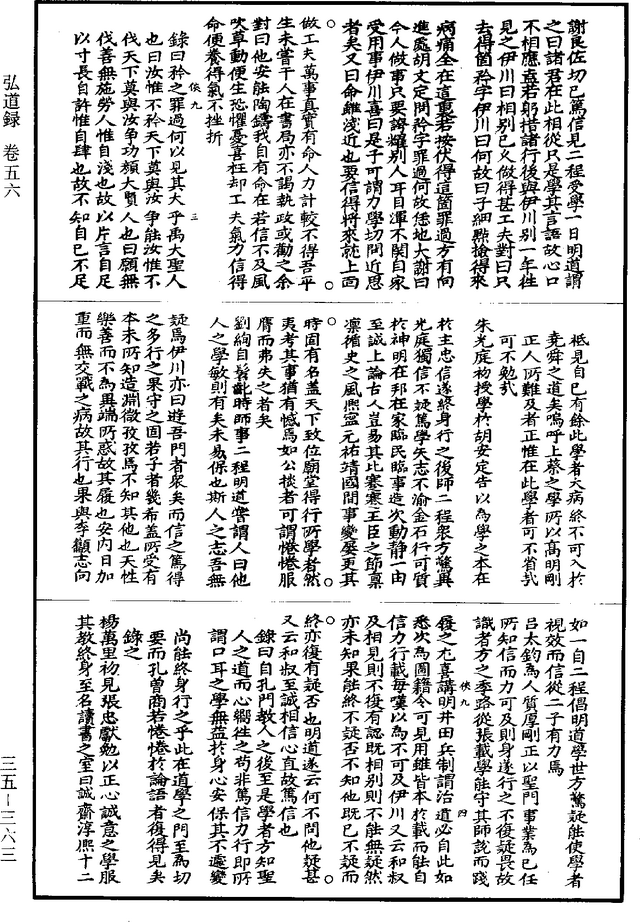 弘道録 卷五六
三五—三六三
謝良佐切己篤信見二程受學一日明道謂
之曰諸君在此相從只是學其言語故心口
不相應盍若躬惜諸行後與伊川别一年徃
見之伊川曰相别已久做得甚工夫對曰只
去得箇矜字伊川曰何故曰子細㸃撿得来
病痛全在這裏若按伏得這箇罪過方有向
進處胡文定問矜字罪過何故恁地大謝曰
今人做事只要誇耀别人耳目渾不關自家
受用事伊川喜曰是子可謂力學切問近思
者矣又曰命雖淺近也要信得將來就上面
做工夫萬事真實有命人力計較不得吾平
生未嘗干人在書局亦不謁執政或勸之余
對曰他安能陶鑄我自有命在若信不及風
吹草動便生恐懼憂喜枉却工夫氣力信得
命便養得氣不挫折
錄曰矜之罪過何以見其大乎禹大聖人
也曰汝惟不矜天下莫與汝争能汝惟不
伐天下莫與汝争功顔大賢人也曰願無
伐善無施勞人惟自淺也故以片言自足
以寸長自許惟自肆也故不知自己不足
秖見自已有餘此學者大病終不可入於
堯舜之道矣嗚呼上蔡之學所以高明剛
正人所難及者正惟在此學者可不省哉
可不勉哉
朱光庭初授學於胡安定告以為學之本在
於主忠信遂終身行之後師二程衆方驚異
光庭獨信不疑篤學矢志不渝金石行可質
於神明在邦在家臨民臨事造次動静一由
至誠上論古人豈易其比蹇蹇王臣之節稟
凛循史之風熙寧元祐靖國間事變屢更其
時固有名盖天下致位廟堂得行所學者然
夷考其事猶有憾焉如公掞者可謂惓惓服
膺而弗失之者矣
劉絢自髫齔時師事二程明道甞謂人曰他
人之學敏則有矣未易保也斯人之志吾無
疑焉伊川亦曰遊吾門者衆矣而信之篤得
之多行之果守之固若子者幾希盖所受有
本末所知造淵微孜孜焉不知其他也天性
樂善而不為異端所惑故其履也安内日加
重而無交戰之病故其行也果與李籲志向
如一自二程倡明道學世方驚疑能使學者
視效而信從二子有力焉
吕太鈞為人質厚剛正以聖門事業為已任
所知信而力可及則身遂行之不復疑畏故
識者方之季路從張載學能守其師說而踐
履之尤喜講明井田兵制謂治道必自此如
悉次為圖籍令可見用雖皆本於載而能自
信力行載每嘆以為不可及伊川又云和叔
及相見則不復有認既相别則不能無疑然
亦未知果能終不疑否不知他既已不疑而
終亦復有疑否也明道遂云何不問他疑甚
又云和叔至誠相信心直故篤信也
錄曰自孔門教人之後至是學者方知聖
人之道而心嚮徃之苟非篤信力行即所
謂口耳之學無益於身心安保其不遷變
尚能終身行之乎此在道學之門至為切
要而孔曾商若惓惓於論語者復得見矣
錄之
楊萬里初見張忠獻勉以正心誠意之學服
其教終身至名讀書之室曰誠齋淳熙十二
佚九 三
佚九 四